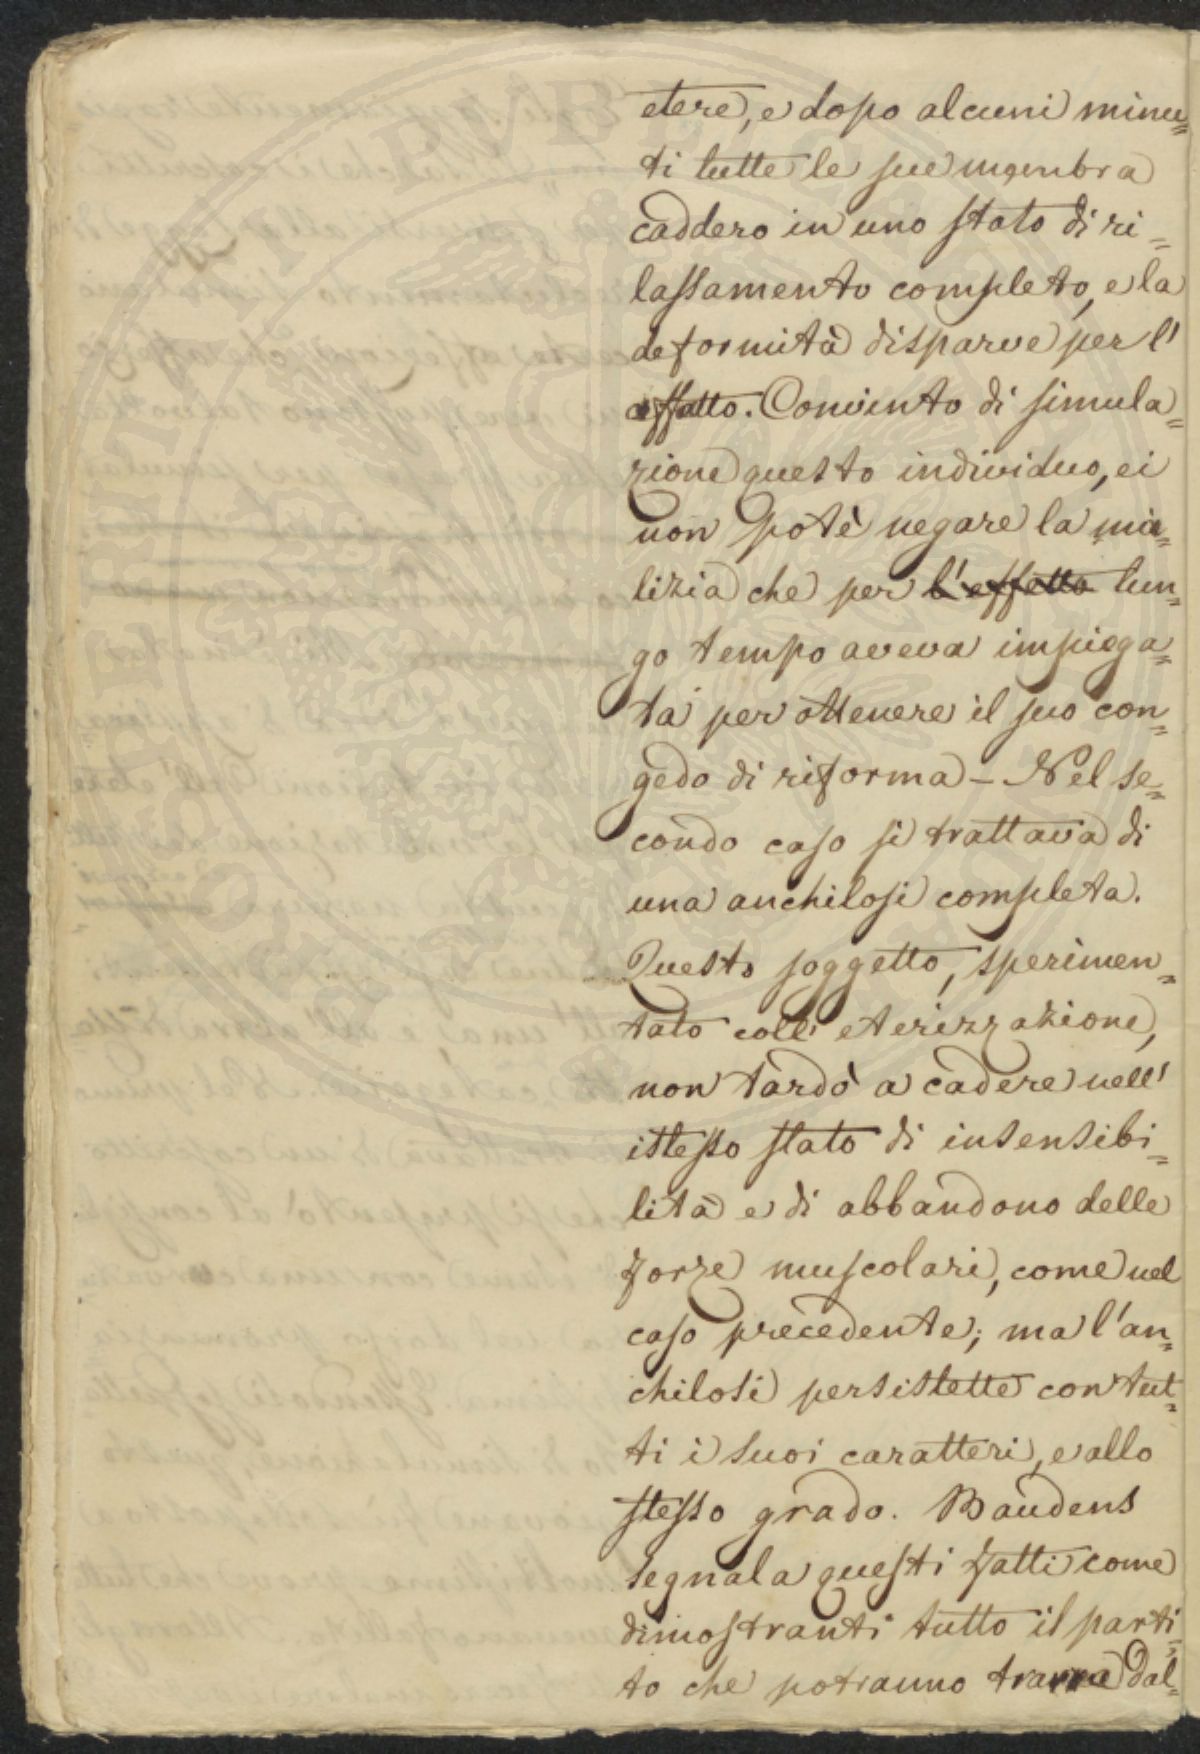 etere, e dopo alcuni minu=
ti tutte le sue membra
caddero in uno stato di ri=
lassamento completo, e la
deformità disparve per l'
affatto. Convinto di simula=
zione questo individuo, ei
non potè negare la ma=
lizia che per l'effetto lun=
go tempo aveva impiega=
ta per ottenere il suo con=
gedo di riforma - Nel se=
condo caso si trattava di
una anchilosi completa.
Questo soggetto, sperimen=
tato coll' eterizzazione,
non tardò a cadere nell'
istesso stato di insensibi=
lità e di abbandono delle
forze muscolari, come nel
caso precedente; ma l'an=
chilosi persistette con tut=
ti i suoi caratteri, e allo
stesso grado. Baudens
segnala questi fatti come
dimostranti tutto il parti=
to che potranno trarre dal=